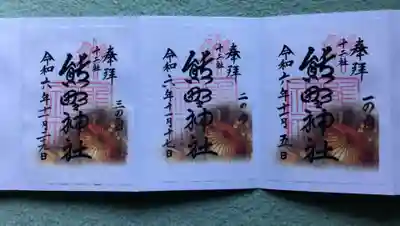 奉拝
十二社
一の酉
熊野神社
令和六年十一月五日
奉拝
十二社
二の酉
熊野神社
令和六年十一月十七日
奉拝
十二社
三の酉
熊野神社
令和六年十一月二十九日